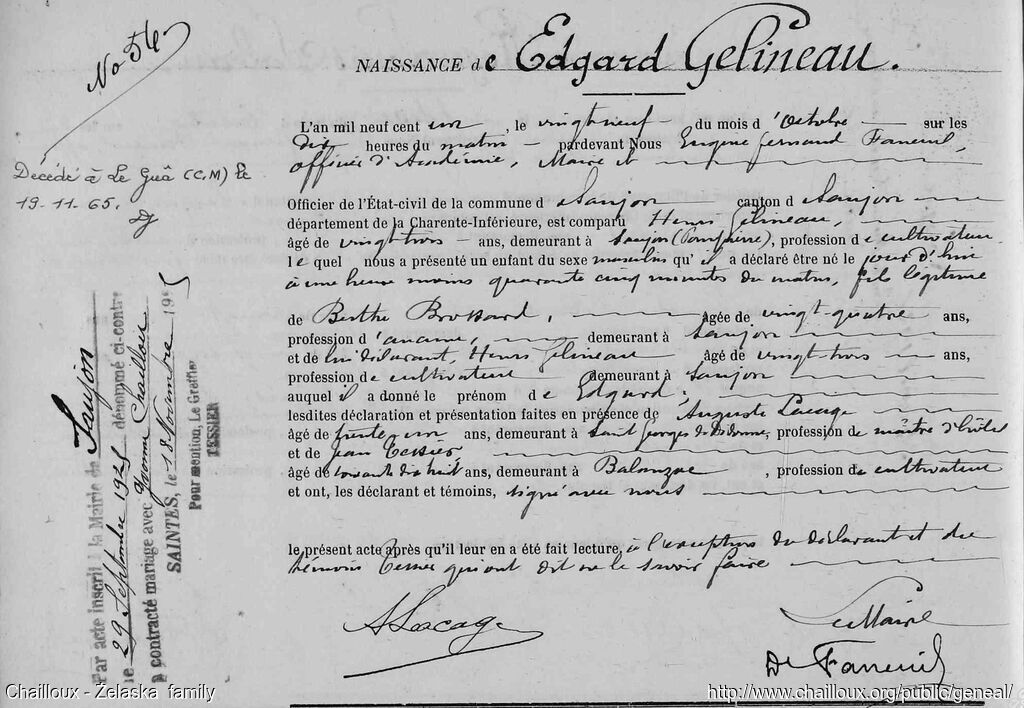 No 54
NAISSANCE de Edgard Gelineau.
L'an mil neuf cent un, le vingt neuf du mois d'Octobre sur les
dix heures du matin pardevant Nous Eugène Fernand Faneuil,
officier d'Académie, Maire et
Officier de l'État-civil de la commune de Saujon canton de Saujon
département de la Charente-Inférieure, est comparu Henri Gelineau,
âgé de vingt trois ans, demeurant à Saujon (), profession de cultivateur
lequel nous a présenté un enfant du sexe masculin qu'il a déclaré être né le jour d'hui
à une heure moins quarante cinq minutes du matin, fils légitime
de Berthe Brossard, âgée de vingt-quatre ans,
profession d'aucune, demeurant à Saujon
et de lui déclarant, Henri Gelineau âgé de vingt-trois ans,
profession de cultivateur demeurant à Saujon
auquel il a donné le prénom de Edgard;
lesdites déclaration et présentation faites en présence de Auguste Lacage
âgé de trente un ans, demeurant à Saint Georges de Didonne, profession de maître d'hôtel
et de Jean Tessier
âgé de soixante dix huit ans, demeurant à Balanzac, profession de cultivateur
et ont, les déclarant et témoins, signé avec nous
le présent acte après qu'il leur en a été fait lecture, à l'exception du déclarant et du
témoin Tessier qui ont dit ne le savoir faire
ALacage
Le Maire
Dr Faneuil
Décédé à Le Guâ (C,M) le
19.11.65.
Par acte inscrit à la Mairie de Saujon
le 29 Septembre 1925 dénommé ci-contre
a contracté mariage avec Yvonne Chailloux
SAINTES, le 18 Novembre 1925
Pour mention, Le Greffier
TESSIER
Chailloux - Zelaska family
http://www.chailloux.org/public/geneal/